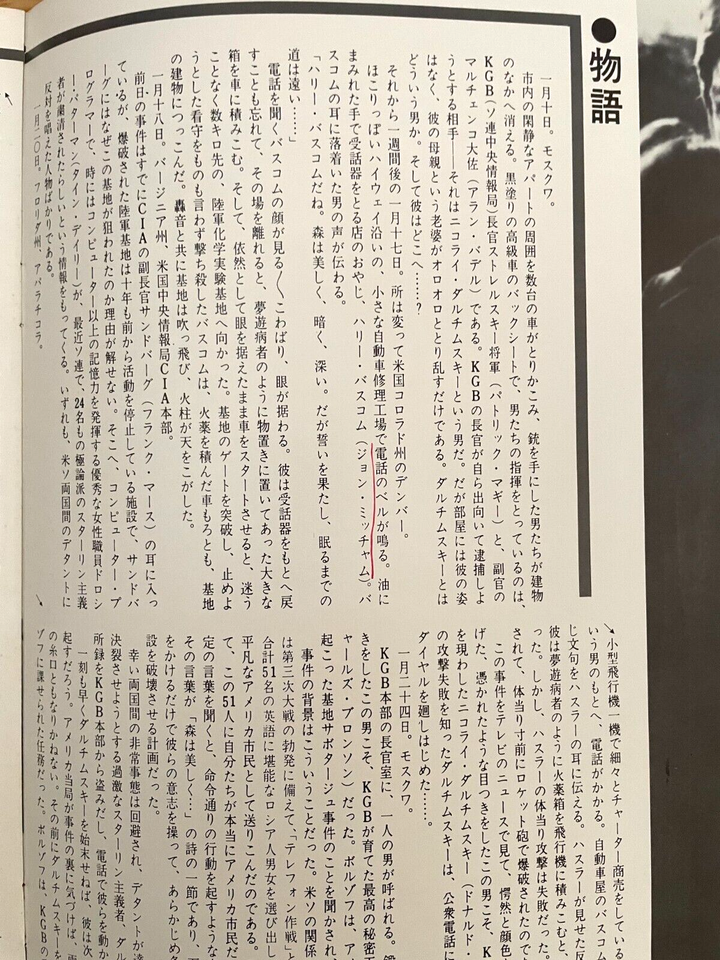 ●物語
一月十日。モスクワ。
市内の閑静なアパートの周囲を数台の車がとりかこみ、銃を手にした男たちが建物
のなかへ消える。黒塗りの高級車のバックシートで、男たちの指揮をとっているのは、
KGB(ソ連中央情報局)長官ストレルスキー将軍(パトリック・マギー)と、副官の
マルチェンコ大佐(アラン・バデル)である。KGBの長官が自ら出向いて逮捕しよ
うとする相手――それはニコライ・ダルチムスキーという男だ。だが部屋には彼の姿
はなく、彼の母親という老婆がオロオロととり乱すだけである。ダルチムスキーとは
どういう男か。そして彼はどこへ……?
それから一週間後の一月十七日。所は変って米国コロラド州のデンバー。
ほこりっぽいハイウェイ沿いの、小さな自動車修理工場で電話のベルが鳴る。油に
まみれた手で受話器をとる店のおやじ、ハリー・バスコム(ジョン・ミッチャム)。バ
スコムの耳に落着いた男の声が伝わる。
「ハリー・バスコムだね。森は美しく、暗く、深い。だが誓いを果たし、眠るまでの
道は遠い……」
電話を聞くバスコムの顔が見る〱こわばり、眼が据わる。彼は受話器をもとへ戻
すことも忘れて、その場を離れると、夢遊病者のように物置きに置いてあった大きな
箱を車に積みこむ。そして、依然として眼を据えたまま車をスタートさせると、迷う
ことなく数キロ先の、陸軍化学実験基地へ向かった。基地のゲートを突破し、止めよ
うとした看守をものも言わず撃ち殺したバスコムは、火薬を積んだ車もろとも、基地
の建物につっこんだ。轟音と共に基地は吹っ飛び、火柱が天をこがした。
一月十八日。バージニア州、米国中央情報局CIA本部。
前日の事件はすでにCIAの副長官サンドバーグ(フランク・マース)の耳に入っ
ているが、爆破された陸軍基地は十年も前から活動を停止している施設で、サンドバ
ーグにはなぜこの基地が狙われたのか理由が解せない。そこへ、コンピューター・プ
ログラマーで、時にはコンピューター以上の記憶力を発揮する優秀な女性職員ドロシ
ー・パターマン(タイン・デイリー)が、最近ソ連で、24名もの極論派のスターリン主義
者が粛清されたらしいという情報をもってくる。いずれも、米ソ両国間のデタントに
反対を唱えた人物ばかりである。
一月二〇日。フロリダ州、アパラチコラ。
小型飛行機一機で細々とチャーター商売をしている
いう男のもとへ、電話がかかる。自動車屋のバスコム
じ文句をハスラーの耳に伝える。ハスラーが見せた反
彼は夢遊病者のように火薬箱を飛行機に積みこむと、
った。しかし、ハスラーの体当り攻撃は失敗だった。
されて、体当り寸前にロケット砲で爆破されたのであ
この事件をテレビのニュースで見て、愕然と顔色
げた、憑かれたような目つきをしたこの男こそ、K
を現わしたニコライ・ダルチムスキー(ドナルド・
の攻撃失敗を知ったダルチムスキーは、公衆電話に
ダイヤルを廻しはじめた……。
一月二十四日。モスクワ。
KGB本部の長官室に、一人の男が呼ばれる。
きをしたこの男こそ、KGBが育てた最高の秘密工
ャールズ・ブロンソン)だった。ボルゾフは、ア
起こった基地サボタージュ事件のことを聞かされ
事件の背景はこういうことだった。米ソの関係
は第三次大戦の勃発に備えて、「テレフォン作戦」と
合計51名の英語に堪能なロシア人男女を選び出し
平凡なアメリカ市民として送りこんだのである。
て、この51人に自分たちが本当にアメリカ市民だ
定の言葉を聞くと、命令通りの行動を起すような
その言葉が「森は美しく…」の詩の一節であり、
をかけるだけで彼らの意志を操って、あらかじめ
設を破壊させる計画だった。
幸い両国間の非常事態は回避され、デタントが達
決裂させようとする過激なスターリン主義者、ダル
所録をKGB本部から盗みだし、電話で彼らを動か
一刻も早くダルチムスキーを始末せねば、彼は次
起すだろう。アメリカ当局が事件の裏に気づけば、
の糸口ともなりかねない。その前にダルチムスキーを
ゾフに課せられた任務だった。ボルゾフは、KGBの